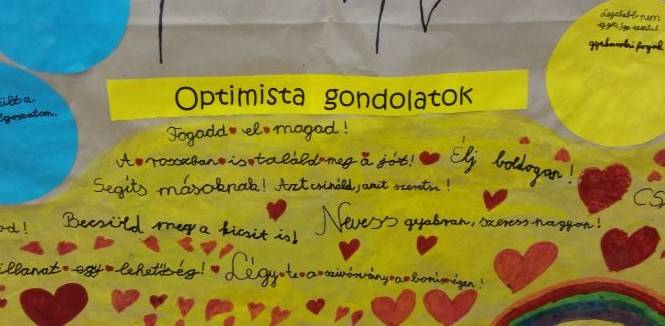 Legalább nem
gyakorolni fogok
Optimista gondolatok
Fogadd el magad!
A rosszban is találd meg a jót!
Élj boldogan!
Segíts másoknak! Azt csináld, amit szeretsz!
Becsüld meg a kicsit is!
Nevess gyakran, szeress nagyon!
egy lehetőség!
Légy te a szivárvány a borús égen!